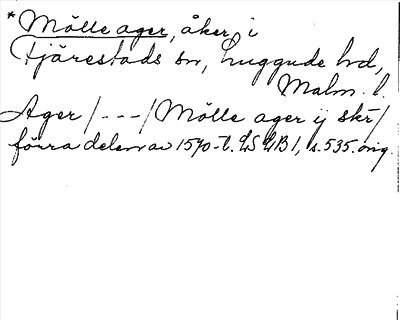 * Mölle ager, åker, i
Tjärestads sn, Luggude hd,
Malm. l.
Ager /---/ Mölle ager ij skr/
förra delen av 1570-t. LSLB 1, s. 535. orig.